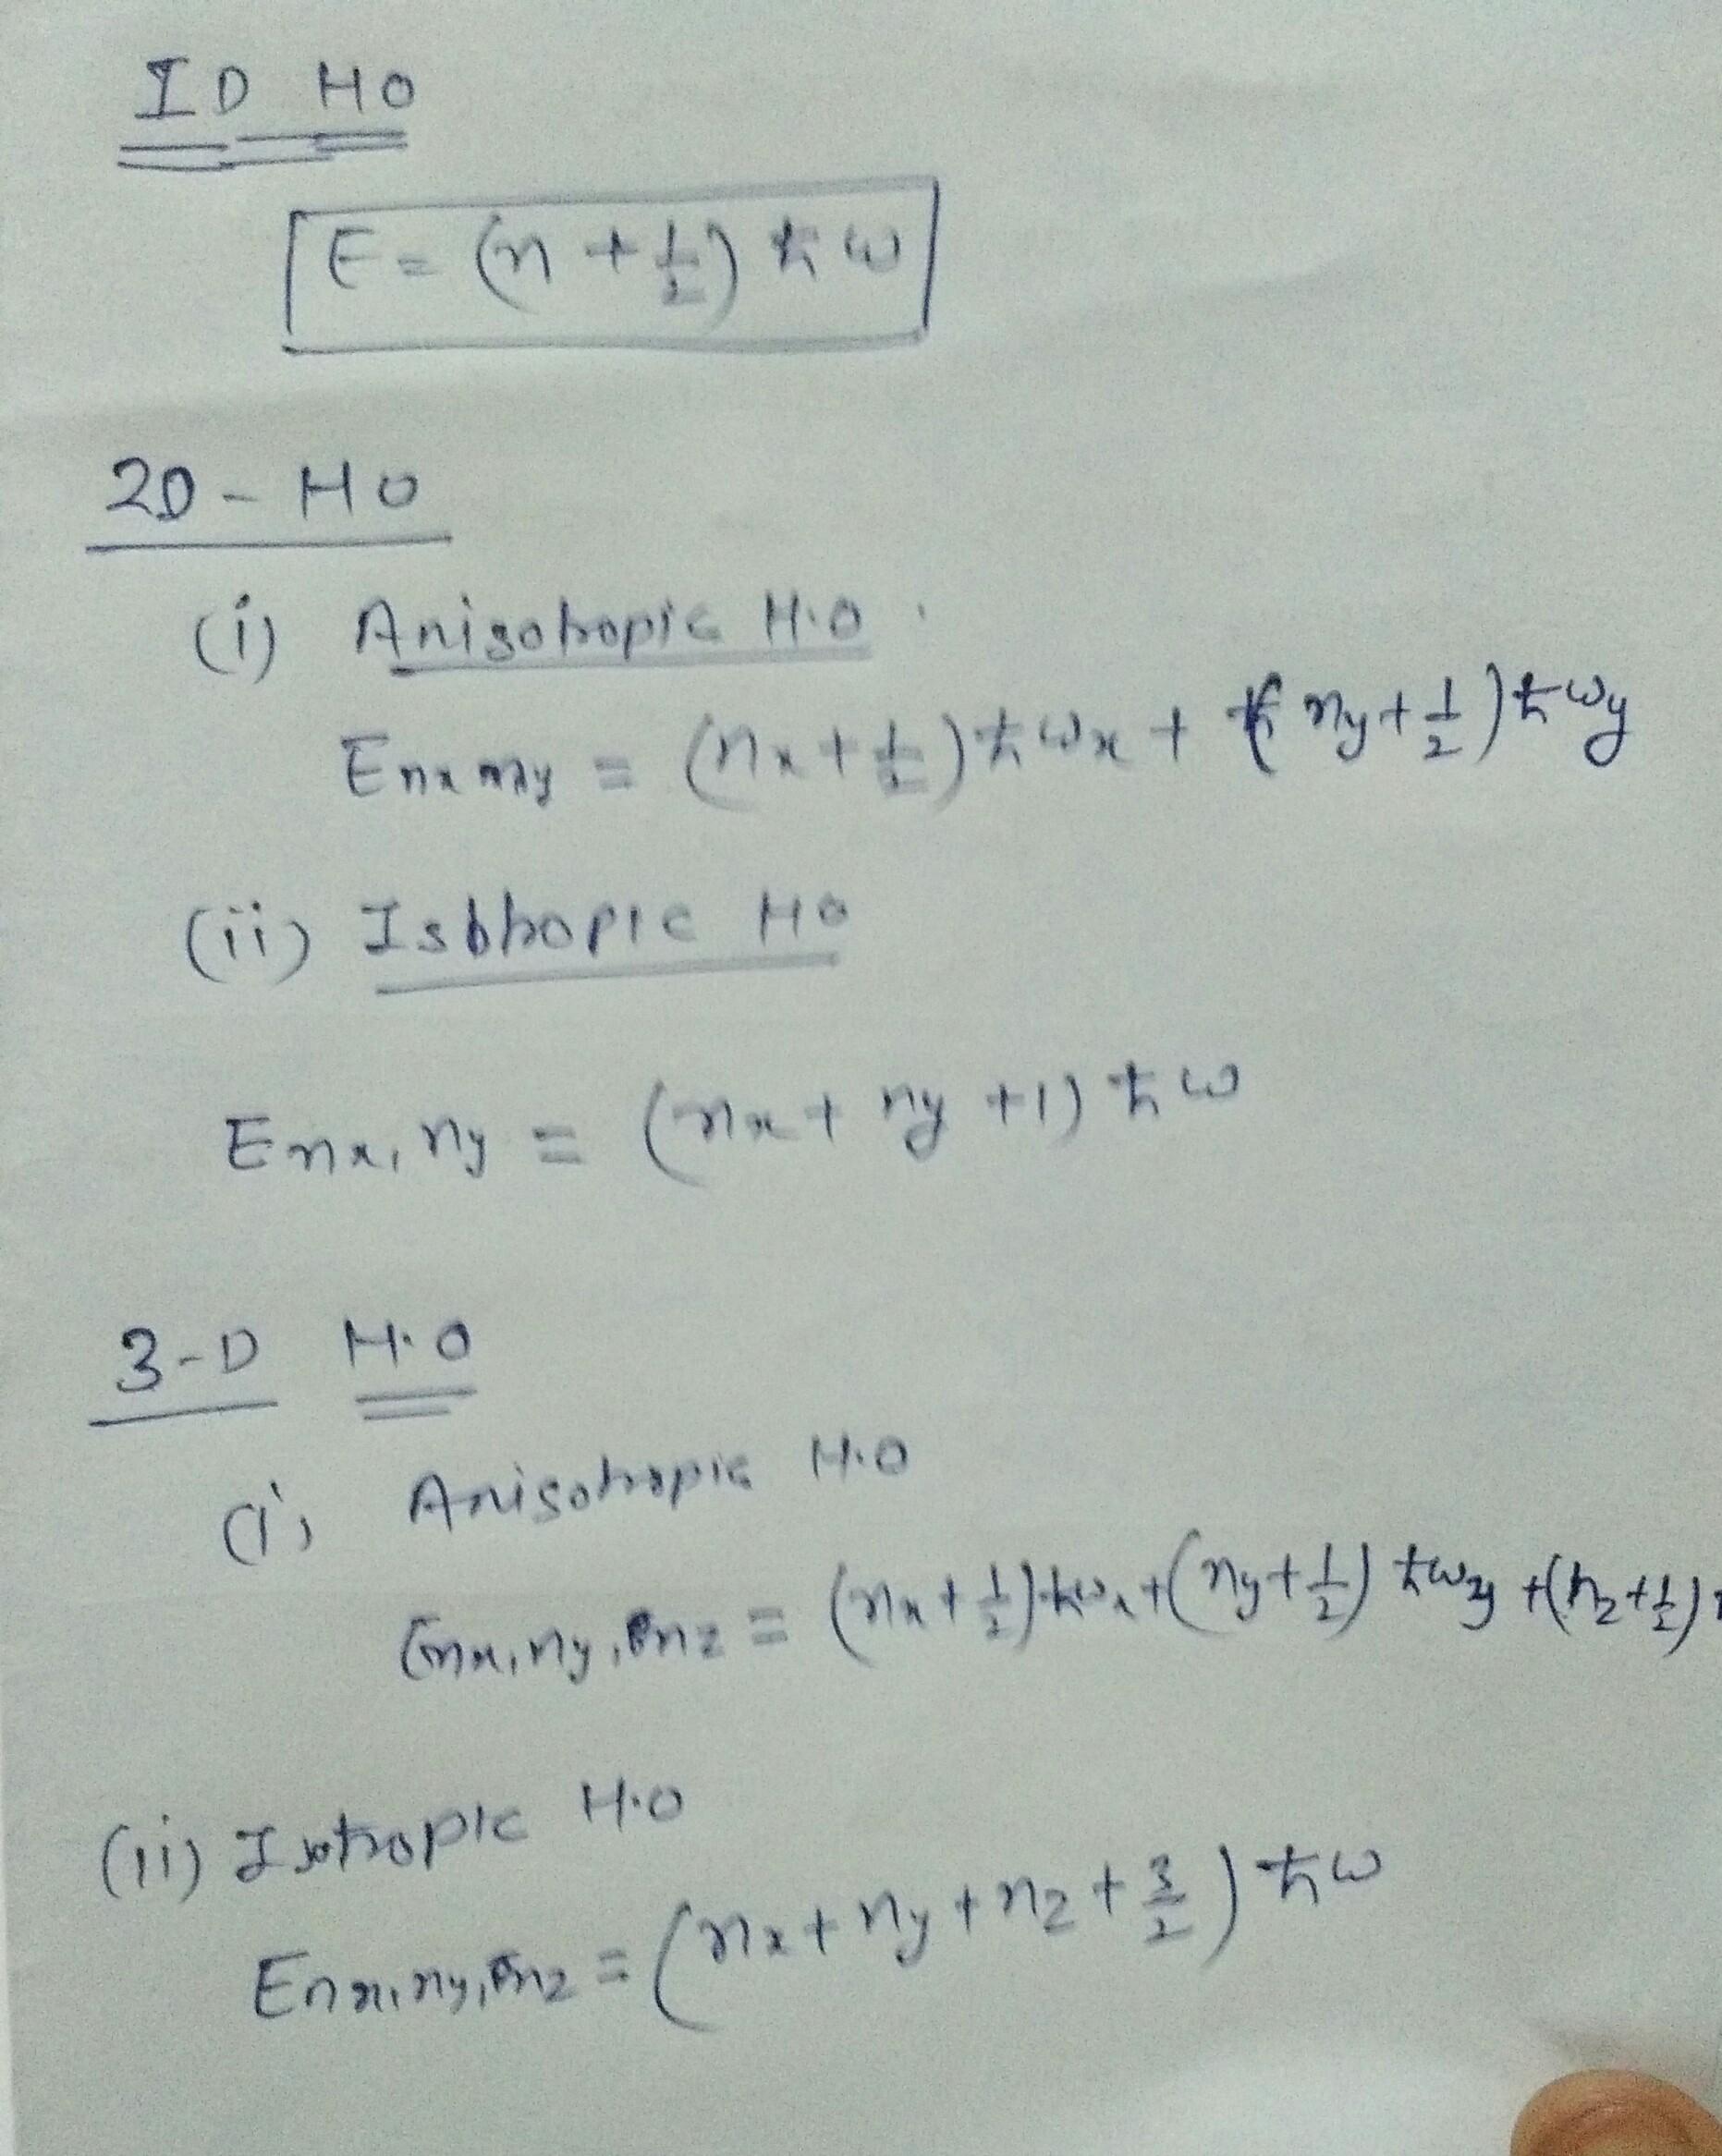 1D HO
E = (n + 1/2) ħω
2D - HO
(i) Anisotropic H.O.
Enx ny = (nx + 1/2) ħωx + (ny + 1/2) ħωy
(ii) Isotropic HO
Enx, ny = (nx + ny + 1) ħω
3-D H.O
(i) Anisotropic H.O
Enx, ny, nz = (nx + 1/2) ħωx + (ny + 1/2) ħωy + (nz + 1/2)
(ii) Isotropic H.O
Enx, ny, nz = (nx + ny + nz + 3/2) ħω